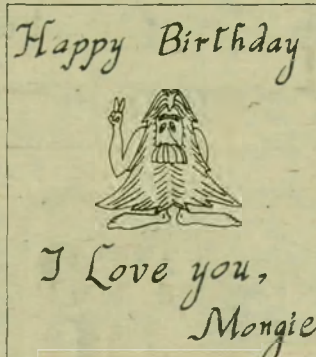 Happy Birthday
I Love you,
Mongie